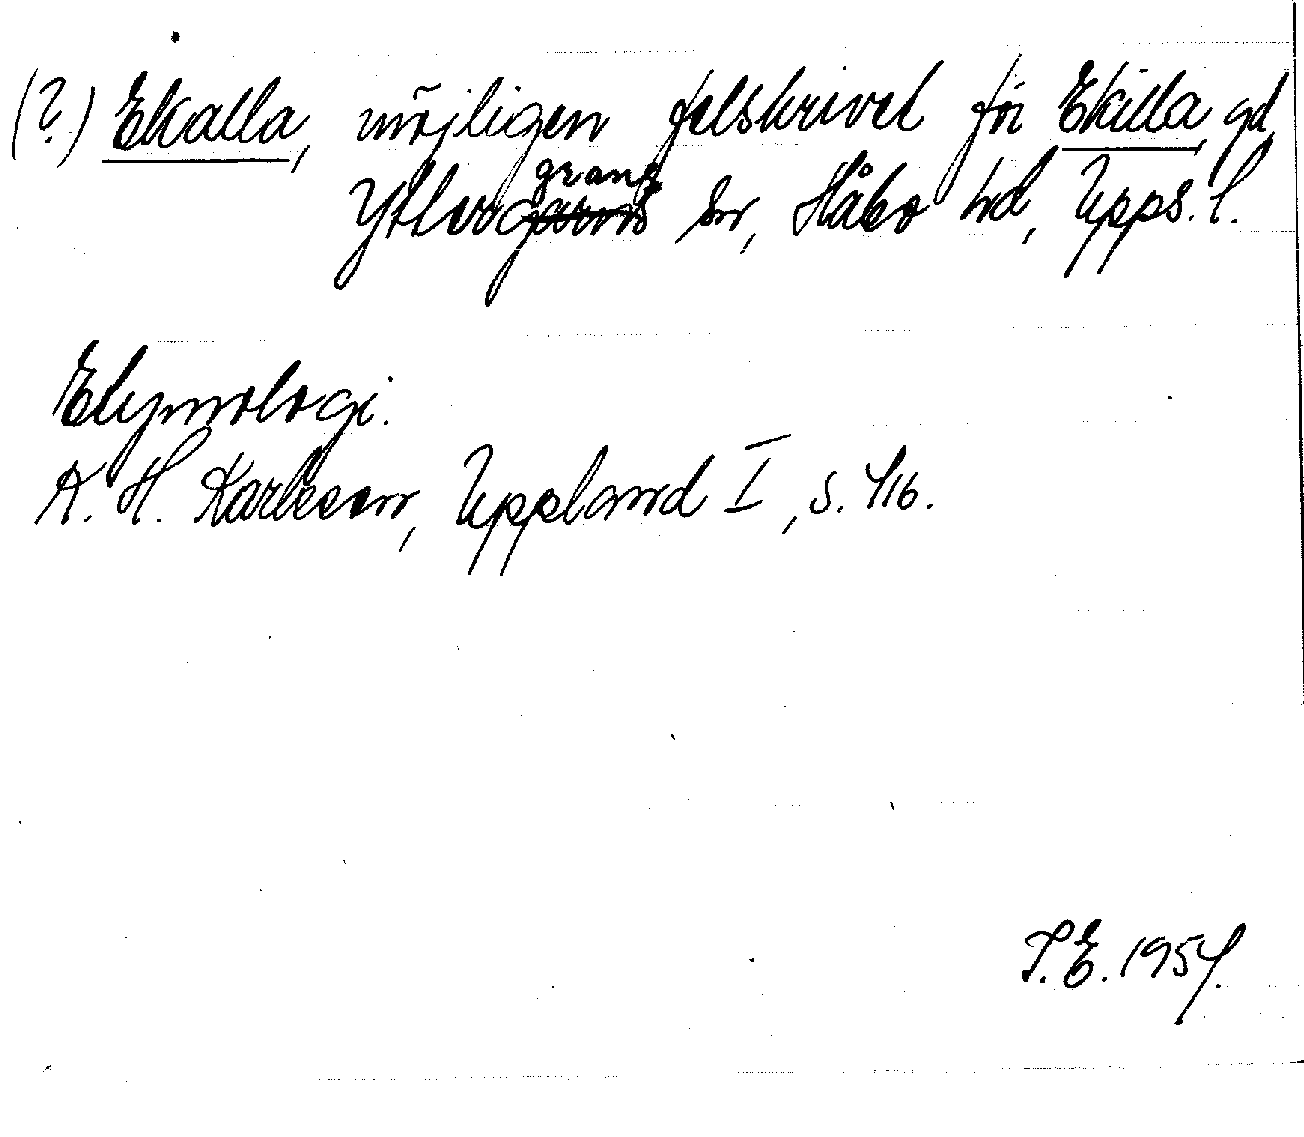 (?) Ekalla, möjligen felskrivet för Ekilla gd,
Yttergrans sn, Håbo hd, Upps. l.
Etymologi.
K. H. Karlsson, Uppland I, s. 416.
T.E. 1954.